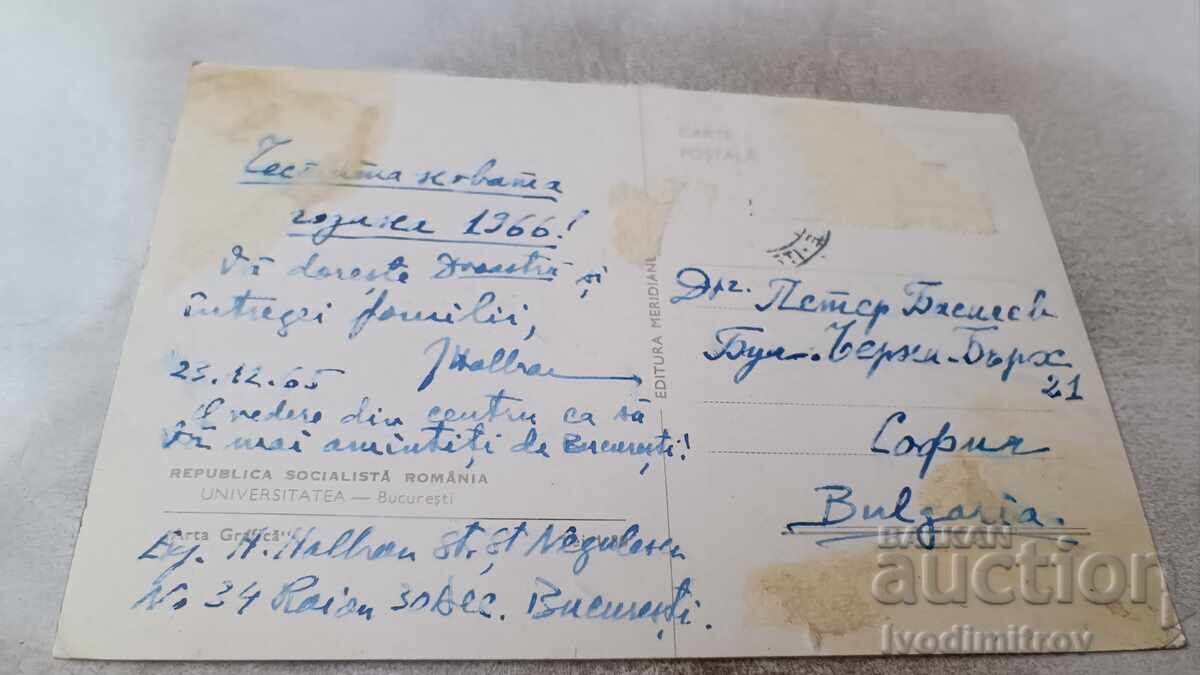 Честита новата
година 1966!
Vă dorește Dvoastră și
întregei familii,
23.12.65 Halbran
O vedere din centru ca să
Vă mai amintiți de București!
REPUBLICA SOCIALISTĂ ROMÂNIA
UNIVERSITATEA — București
Arta Grafică"
H. Halbran St. Șt Negulescu
No 34 Raion 30 Dec. București.
EDITURA MERIDIANE
CARTE
POȘTALĂ
Друг. Петър
Бул. Черни-Връх
21
София
Bulgaria.
BALKAN
auction
Ivodimitrov